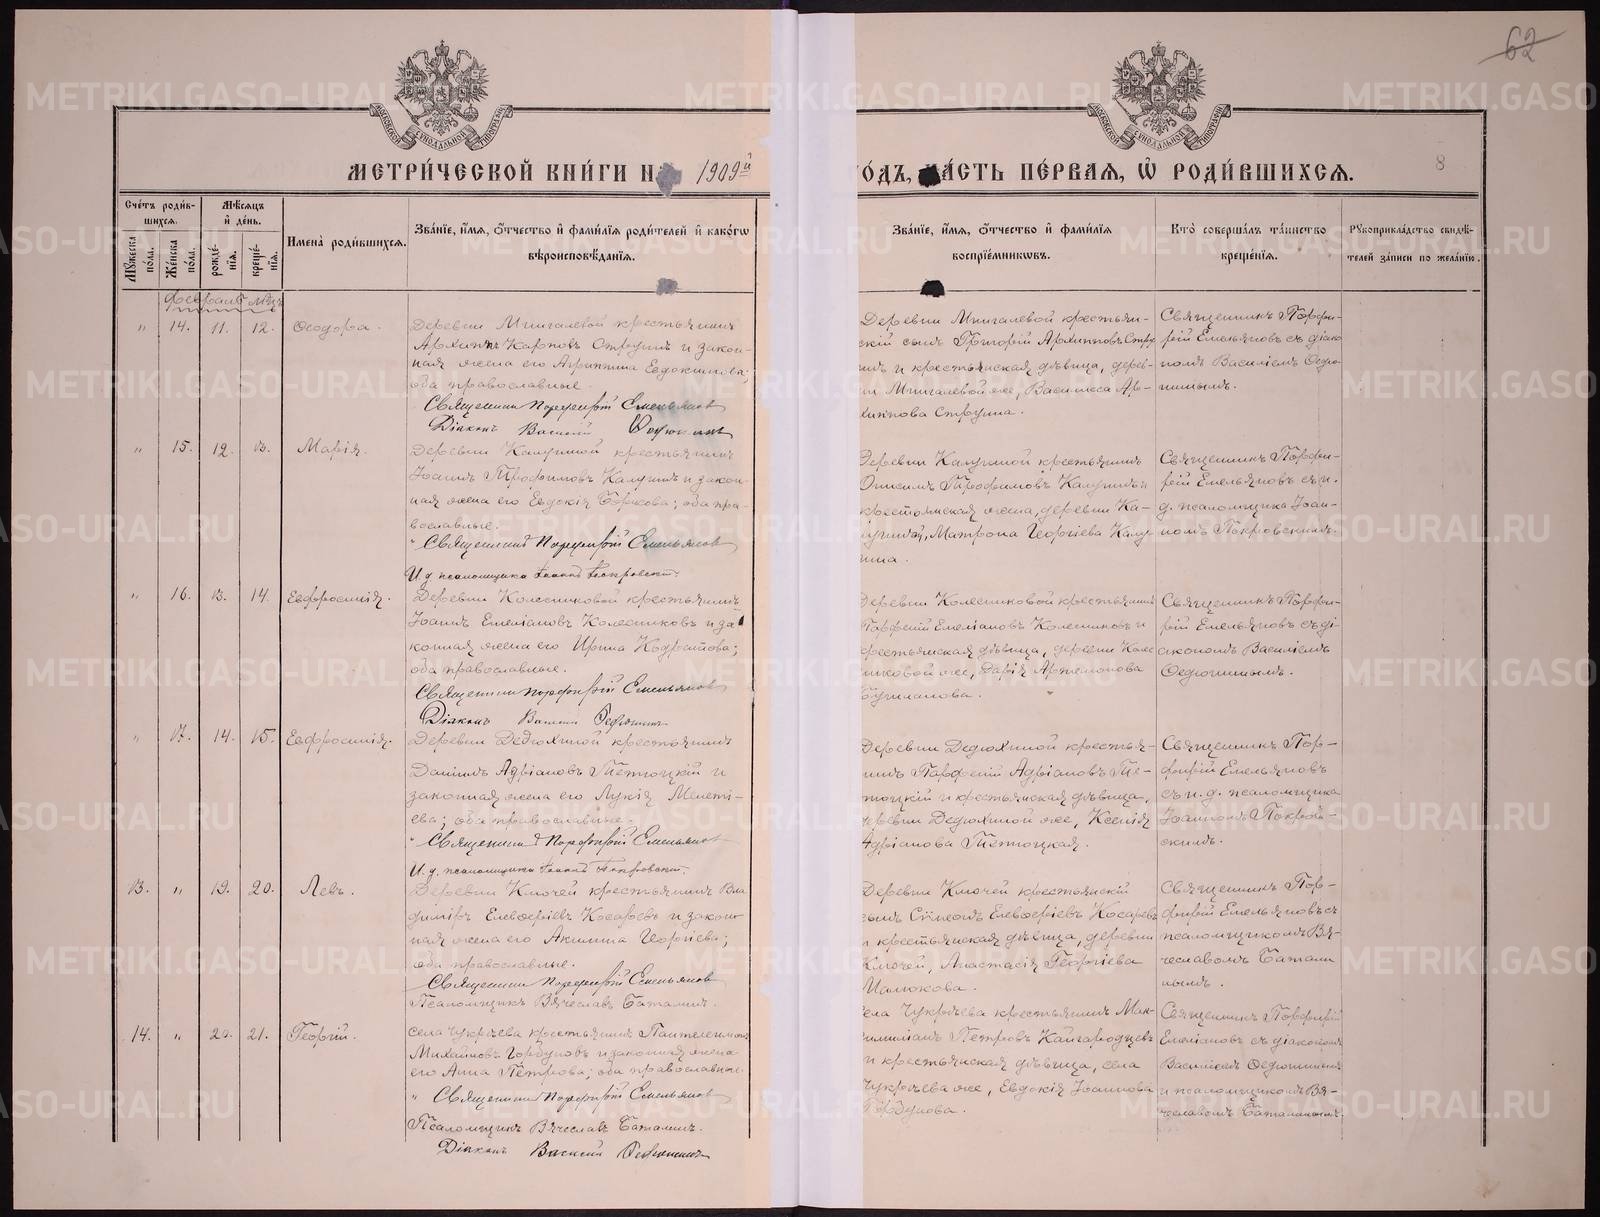 62
МЕТРИ́ЧЕСКОЙ КНИ́ГИ Н 1909й
ГО́ДЪ, ЧА́СТЬ ПЕ́РВАЯ, Ѡ РОДИ́ВШИХСЯ.
8
Сче́тъ роди́в-
шихся.
Мѣ́сяцъ
и҆ де́нь.
Му́жеска по́ла.
Же́нска по́ла.
рожде́-
нїя.
креще́-
нїя.
И҆мена̀ роди́вшихся.
Зва́нїе, и҆́мя, ѻ҆́тчество и҆ фами́лїя роди́телей и҆ како́гѡ
вѣроисповѣ́данїя.
Зва́нїе, и҆́мя, ѻ҆́тчество и҆ фами́лїя
воспрїе́мникѡвъ.
Кто̀ соверша́лъ та́инство
креще́нїя.
Рꙋкоприкла́дство свидѣ́-
телей за́писи по жела́нїю.
Февраль мцъ
" 14. 11. 12. Ѳеодора.
Деревни Мнигалевой крестьянинъ
Архипъ Карповъ Струинъ и закон-
ная жена его Агриппина Евдокимова;
оба православные.
Священник Порфирій Емельянов
Діакон Василій Федюшин
Деревни Мнигалевой крестьян-
скій сынъ Григорій Архиповъ Стру
инъ и крестьянская дѣвица, дерев-
ни Мнигалевой же, Василиса Ар-
хиппова Струина.
Священникъ Порфи-
рій Емельяновъ съ діако
номъ Василіемъ Федю-
шинымъ.
" 15. 12. 13. Марія.
Деревни Калугиной крестьянинъ
Іоаннъ Трофимовъ Калугинъ и закон-
ная жена его Евдокія Боркова; оба пра-
вославные.
" Священник Порфирій Емельянов
И. д. псаломщика Іоанн Покровскій.
Деревни Калугиной крестьянинъ
Онисимъ Трофимовъ Калугинъ и
крестьянская жена, деревни Ка-
лугиной, Матрона Георгіева Калу-
гина.
Священникъ Порфи-
рій Емельяновъ съ и.
д. псаломщика Іоан-
номъ Покровскимъ.
" 16. 13. 14. Евфросинія.
Деревни Колесниковой крестьянинъ
Іоаннъ Емеліановъ Колесниковъ и за
конная жена его Ирина Кодратова;
оба православные.
Священник Порфирій Емельянов
Діакон Василій Федюшин
Деревни Колесниковой крестьянинъ
Парфеній Емеліановъ Колесниковъ и
крестьянская дѣвица, деревни Колес
никовой же, Дарія Артемонова
Священникъ Порфи-
рій Емельяновъ съ ді-
акономъ Василіемъ
Федюшинымъ.
" 17. 14. 15. Евфросинія.
Деревни Дедюхиной крестьянинъ
Даніилъ Адріановъ Тетюцкій и
законная жена его Лукія Мелеті-
ева; оба православные.
" Священник Порфирій Емельянов
И. д. псаломщика Іоанн Покровскій.
Деревни Дедюхиной крестья-
нинъ Парфеній Адріановъ Те-
тюцкій и крестьянская дѣвица,
деревни Дедюхиной же, Ксенія
Адріанова Тетюцкая.
Священникъ Пор-
фирій Емельяновъ
съ и. д. псаломщика
Іоанномъ Покров-
скимъ.
13. " 19. 20. Левъ.
Деревни Ключей крестьянинъ Вла
диміръ Елевферіевъ Косаревъ и закон
ная жена его Акилина Георгіева;
оба православные.
Священник Порфирій Емельянов
Псаломщикъ Вячеславъ Баталинъ.
Деревни Ключей крестьянскій
сынъ Сімеонъ Елевферіевъ Косаревъ
и крестьянская дѣвица, деревни
Ключей, Анастасія Георгіева
Малюкова.
Священникъ Пор-
фирій Емельяновъ съ
псаломщикомъ Вя-
чеславомъ Батали
нымъ.
14. " 20. 21. Георгій.
Села Чукрѣева крестьянинъ Пантелеимонъ
Михаиловъ Горбуновъ и законная жена
его Анна Петрова; оба православные.
" Священник Порфирій Емельянов
Псаломщикъ Вячеславъ Баталинъ.
Діакон Василій Федюшин
Села Чукрѣева крестьянинъ Мак-
симиліанъ Петровъ Кайгородцевъ
и крестьянская дѣвица, села
Чукрѣева же, Евдокія Іоаннова
Горбунова.
Священникъ Порфирій
Емеліановъ съ діакономъ
Василіемъ Федюшинымъ
и псаломщикомъ Вя-
чеславомъ Баталинымъ.